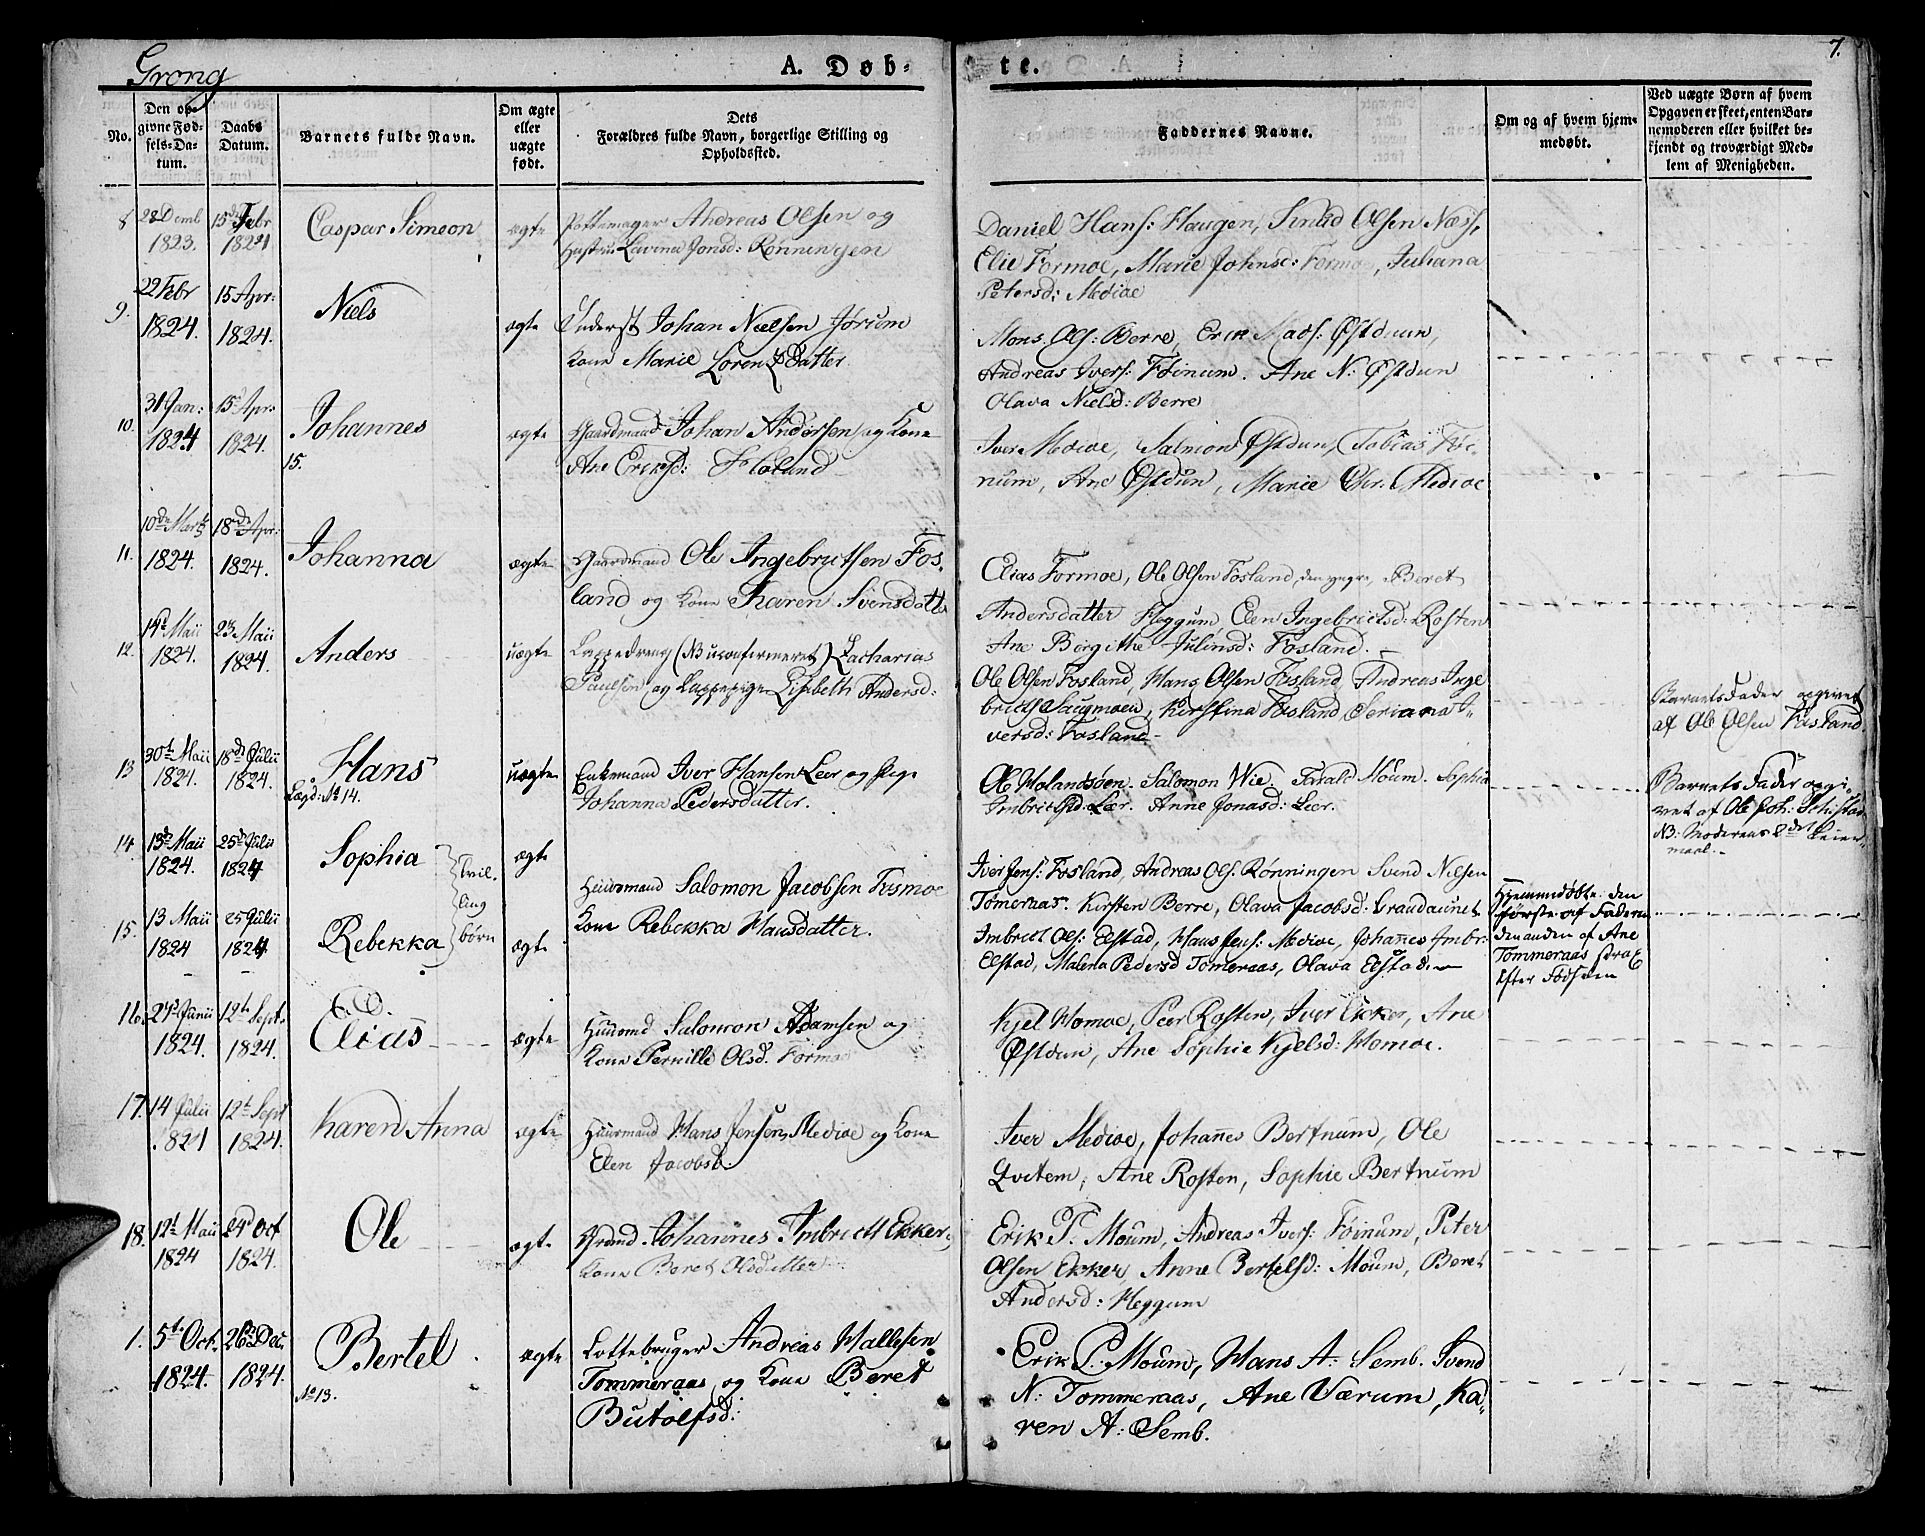 Grong
A. Døb-
te.
7.
No.
Den op-
givne Fød-
sels-Da-
tum.
Daabs
Datum.
Barnets fulde Navn.
Om ægte
eller
uægte
født.
Dets
Forældres fulde Navn, borgerlige Stilling og
Opholdssted.
Faddernes Navne.
Om og af hvem hjem-
medøbt.
Ved uægte Børn af hvem
Opgaven er skeet, enten Bar-
nemoderen eller hvilket be-
kjendt og troværdigt Med-
lem af Menigheden.
8
28 Decmb
1823.
15de Febr
1824
Caspar Simeon
ægte
Pottemager Andreas Olsen og
Lavina Jonsd: Rønningen
Daniel Hans: Haugen, Knud Olsen Næss,
Elie Formoe, Marie Johnsd: Formoe, Juliana
Petersd: Medioe
9.
22 Febr
1824.
15 Apr:
1824.
Niels
ægte
Inderst Johan Nielsen Jørum
Kone Marie Lorentzdatter
Mons Ols: Berre, Erik Mads: Østduun,
Andreas Ivers: Føinum. Ane N: Østdun
Olava Nielsd: Berre
10.
31 Jan:
1824
15 Apr:
1824.
Johannes
15.
ægte
Gaardmand Johan Andersen og Kone
Ane Eriksd: Floland
Iver Medioe, Salmon Østdun, Tobias Føi-
num, Ane Østdun, Marie Chr. Medioe
11.
10de Marts
1824.
18de Apr:
1824.
Johanna
ægte
Gaardmand Ole Ingebrictsen Fos-
land og Kone Karen Svensdatter
Elias Formoe, Ole Olsen Fosland, den yngre, Beret
Andersdatter Heggum Elen Ingebrictsd: Rosten
Ane Borgithe Julinsd: Fosland.
12.
14de Maii
1824.
23 Maii
1824.
Anders
uægte
Lappedreng (NB uconfirmeret) Zacharias
Paulsen og Lappepige Lisbeth Andersd:
Ole Olsen Fosland, Hans Olsen Fosland, Andreas Inge
bricts Saugmoen, Kirstina Fosland Seriana I-
versd: Fosland
Barnets Fader opgivet
af Ole Olsen Fosland.
13
30te Maii
1824.
18de Julii
1824.
Hans
Lægd: No 14.
uægte
Enkemand Iver Hansen Leer og Pige
Johanna Pedersdatter.
Ole Molandsøen. Salomon Wie. Tarald Moum. Sophia
Imbrictsd. Lær. Anne Jonasd: Leer.
Barnets Fader opgi-
vet af Ole Joh: Schistad
NB: Moderens 2det Leier-
maal.
14.
13de Maii
1824.
25de Julii
1824
Sophia
Tvil-
ling
børn
ægte
Huusmand Salomon Jacobsen Fosmoe
Kone Rebekka Hansdatter.
Iver Jens: Fosland, Andreas Ols: Rønningen Svend Nilsen
Tømeraas. Kirsten Berre, Olava Jacobsd: Grandaunet
Hjemmedøbte den
første af Faderen
den anden af Ane
Tømmeraas strax
efter Fødselen
15.
13 Maii
1824
25 Julii
1824.
Rebekka
ægte
Imbrict Ols: Elstad, Hans Jens: Medioe, Johannes Imbr:
Elstad, Malena Pedersd Tomeraas, Olava Elstad
16.
24de Junii
1824.
12te Sept.
1824.
Elias
ægte
Huusmd Salomon Adamsen og
Kone Pernille Olsd. Formoe
Kjel Homoe, Peer Rosten, Iver Ekker, Ane
Østdun, Ane Sophie Kjelsd: Homoe.
17.
14 Julii
1824
12te Sept
1824.
Karen Anna
ægte
Huusmand Hans Jensen Medioe og Kone
Elen Jacobsd.
Iver Medioe, Johannes Bertnum, Ole
Qvitem, Ane Rosten, Sophie Bertnum
18.
12te Maii
1824
24de Oct
1824.
Ole
ægte
Grmd. Johannes Imbrict Ekker og
Kone Beret Olsdatter
Erik P. Moum, Andreas Ivers: Føinum, Peter
Olsen Ekker, Anne Bertelsd: Moum, Beret
Andersd: Heggum
1.
5te Oct.
1824.
26de Dec.
1824.
Bertel
No 13.
ægte
Lottebruger Andreas Hallesen
Tommeraas og Kone Beret
Butolfsd:
Erik P. Moum, Hans A: Semb. Svend
N: Tommeraas, Ane Værum, Ka-
ren A: Semb.